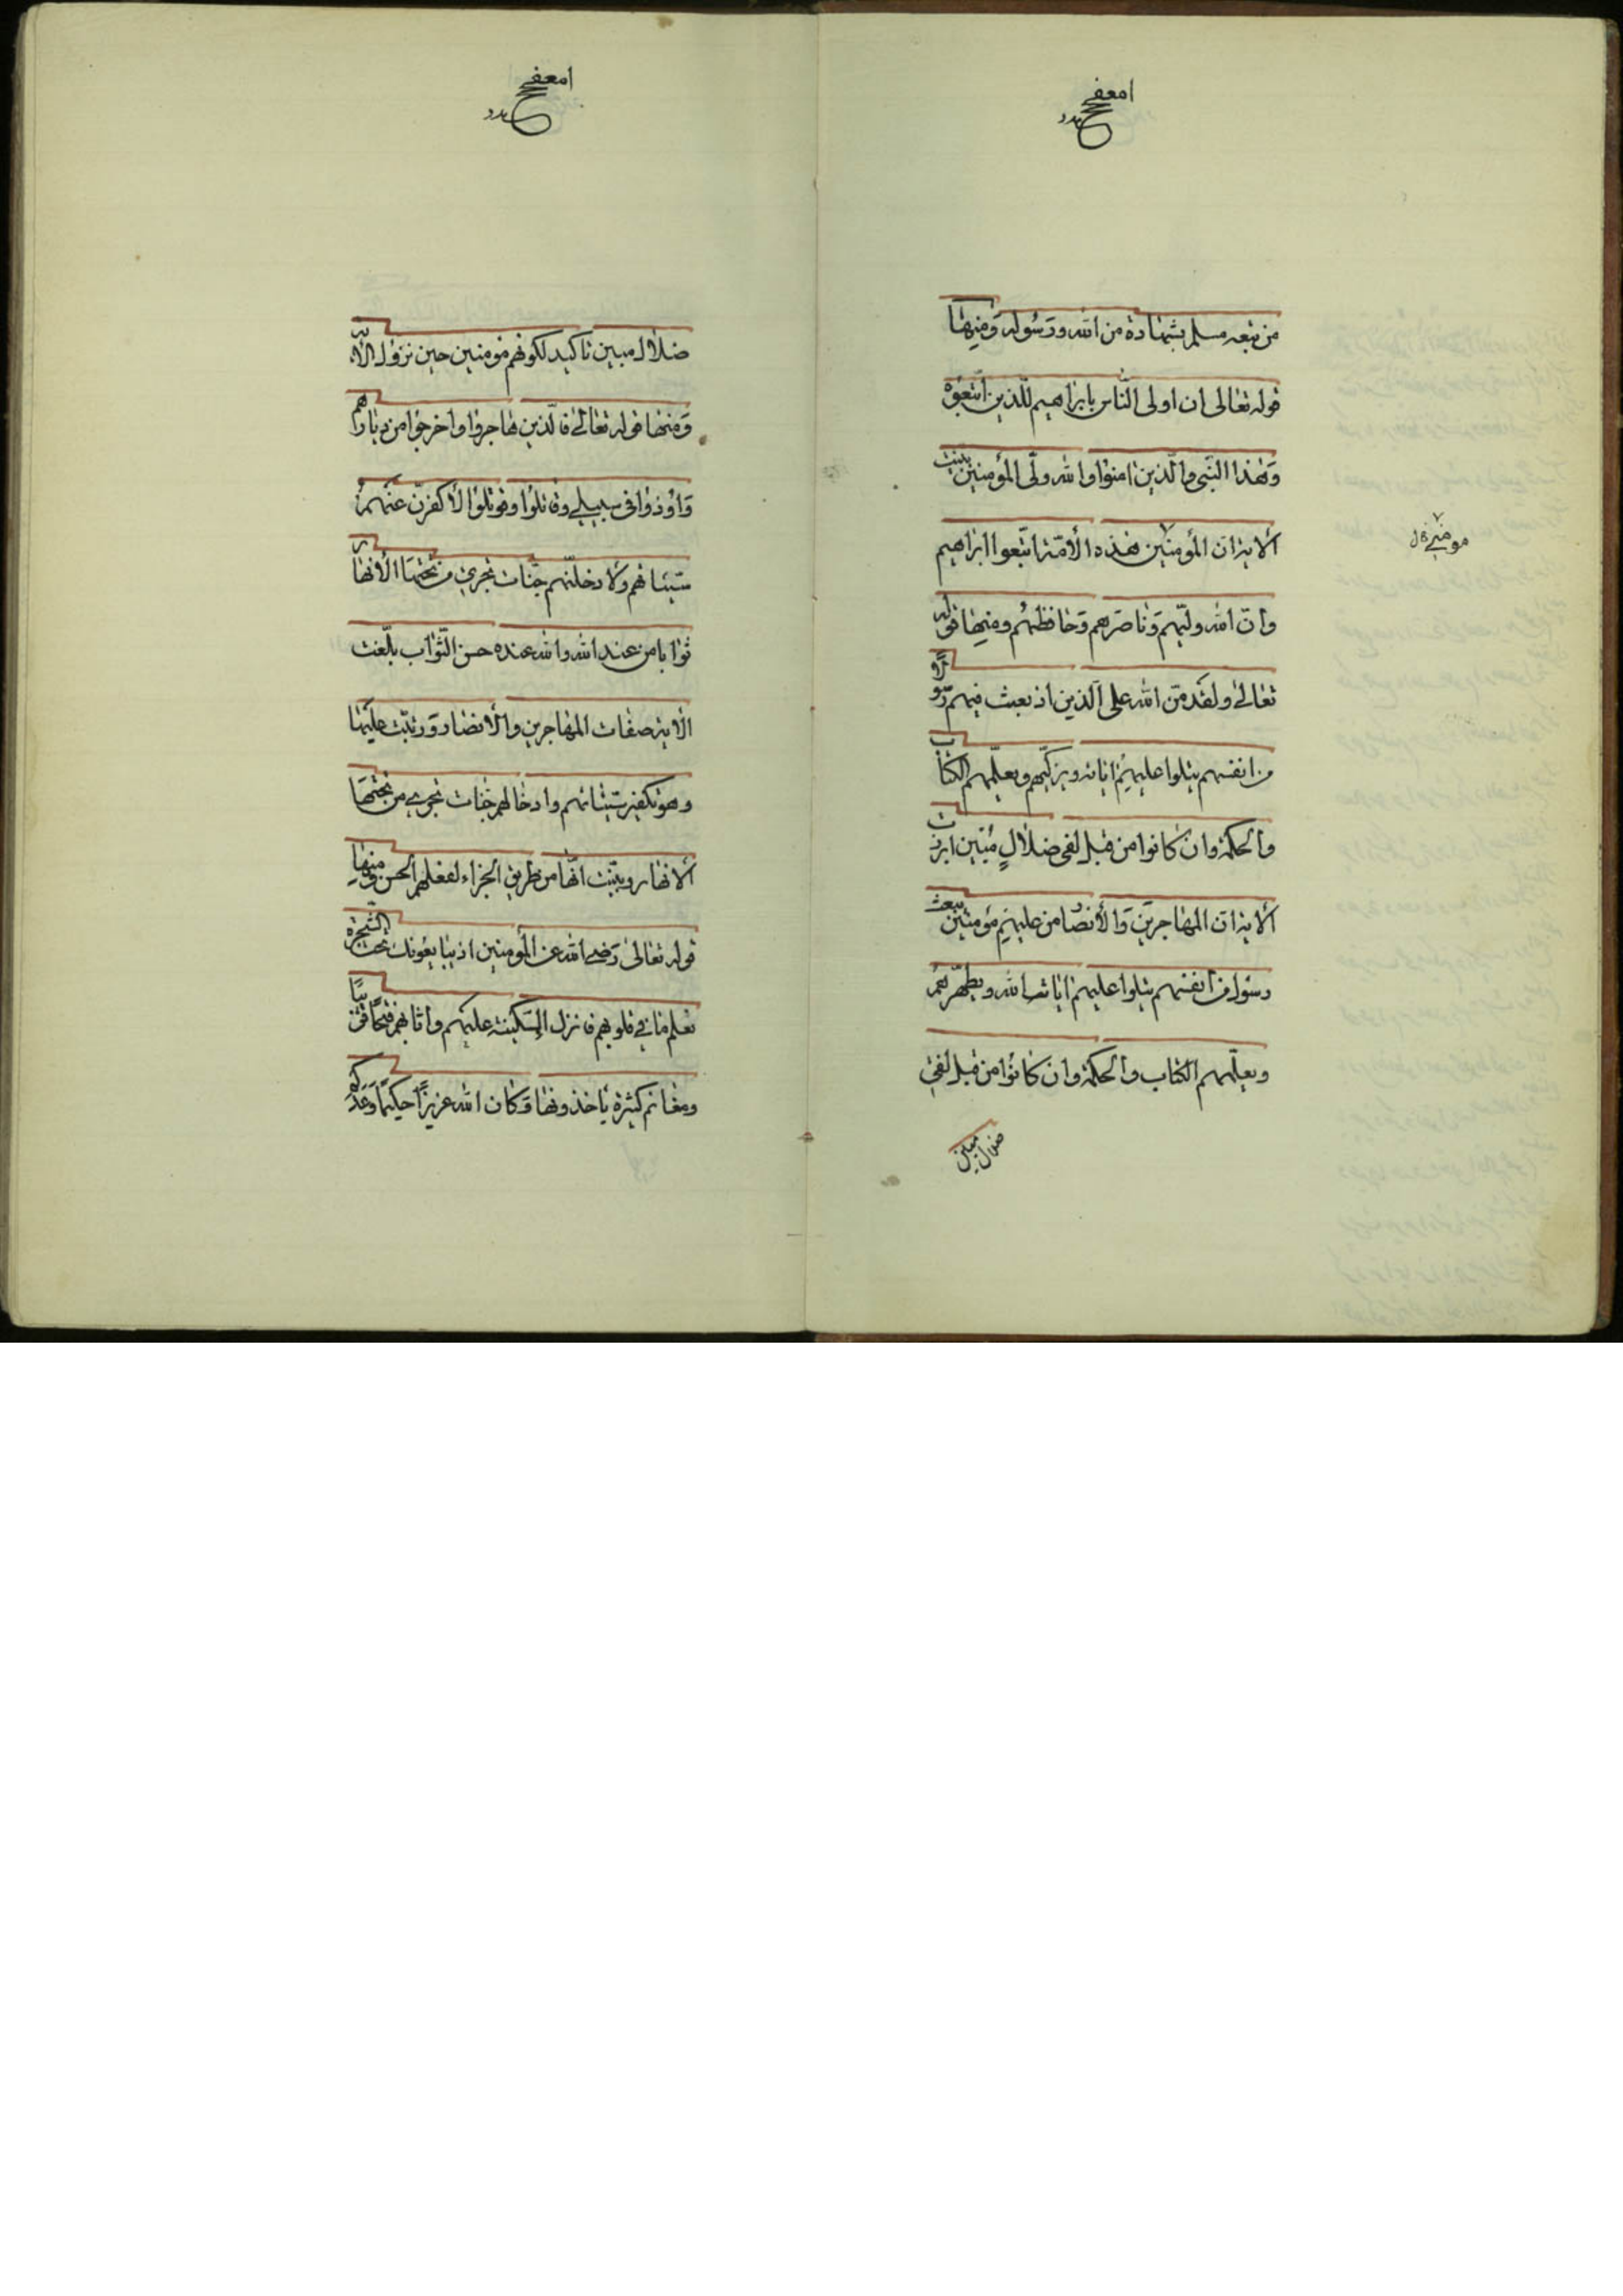 من تبعه مسلم بشهادة من الله ورسوله ومنها
قوله تعالى ان اولى الناس بابراهيم للذين اتبعوه
وهذا النبي والذين امنوا والله ولى المؤمنين بينت
الاية ان المؤمنين هذه الأمّة اتبعوا ابراهيم
وان الله وليّهم وناصرهم وحافظهم ومنها قوله
تعالى ولقد منّ الله على الذين اذ بعث فيهم رسولا
من انفسهم يتلوا عليهم اياته ويزكّيهم ويعلّمهم الكتاب
والحكمة وان كانوا من قبل لفى ضلالٍ مبين ابرزت
الاية ان المهاجرين والأنصار من عليهم مؤمنين يبعث
رسول من انفسهم يتلوا عليهم ايات الله ويطهّرهم
ويعلّمهم الكتاب والحكمة وان كانوا من قبل لفى
ضلال مبين
ضلال مبين تاكيد لكونهم مؤمنين حين نزول الاية
ومنها قوله تعالى فالّذين هاجروا واخرجوا من ديارهم
واوذوا في سبيلي وقاتلوا وقوتلوا لأكفرنّ عنهم
سيئاتهم ولأدخلنّهم جنّات تجري من تحتها الأنهار
ثوابا من عند الله والله عنده حسن الثّواب بلّغت
الاية صفات المهاجرين والانصار ورتبّت عليها
وهو تكفير سيّئاتهم وادخالهم جنات تجري من تحتها
الانهار وبيّنت انّها من طريق الجزاء لفعلهم الحسن ومنها
قوله تعالى رضي الله عن المؤمنين اذ يبايعونك تحت الشّجرة
فعلم ما في قلوبهم فانزل السّكينة عليهم واثابهم فتحًا قريبًا
ومغانم كثيرة يأخذونها وكان الله عزيزًا حكيمًا وعدكم